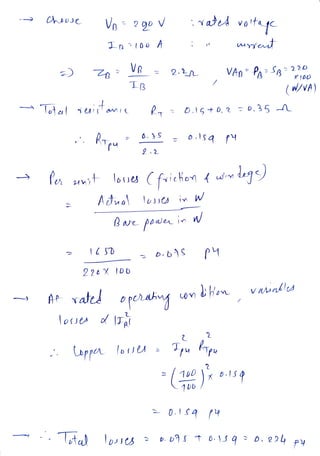 → Choose V_B = 220 V : rated voltage
I_B = 100 A : " current
=) Z_B = V_B / I_B = 2.2 Ω VA_B = P_B = S_B = 220 × 100 (W/VA)
→ Total resistance R_T = 0.15 + 0.2 = 0.35 Ω
∴ R_Tpu = 0.35 / 2.2 = 0.159 pu
→ Per unit losses (friction & windage)
= Actual losses in W / Base power in W
= 1650 / 220 × 100 = 0.075 pu
→ At rated operating condition, variables
losses α |I_a|²
∴ Copper losses = I²pu R_Tpu
= (100 / 100)² × 0.159
= 0.159 pu
→ ∴ Total losses = 0.075 + 0.159 = 0.234 pu